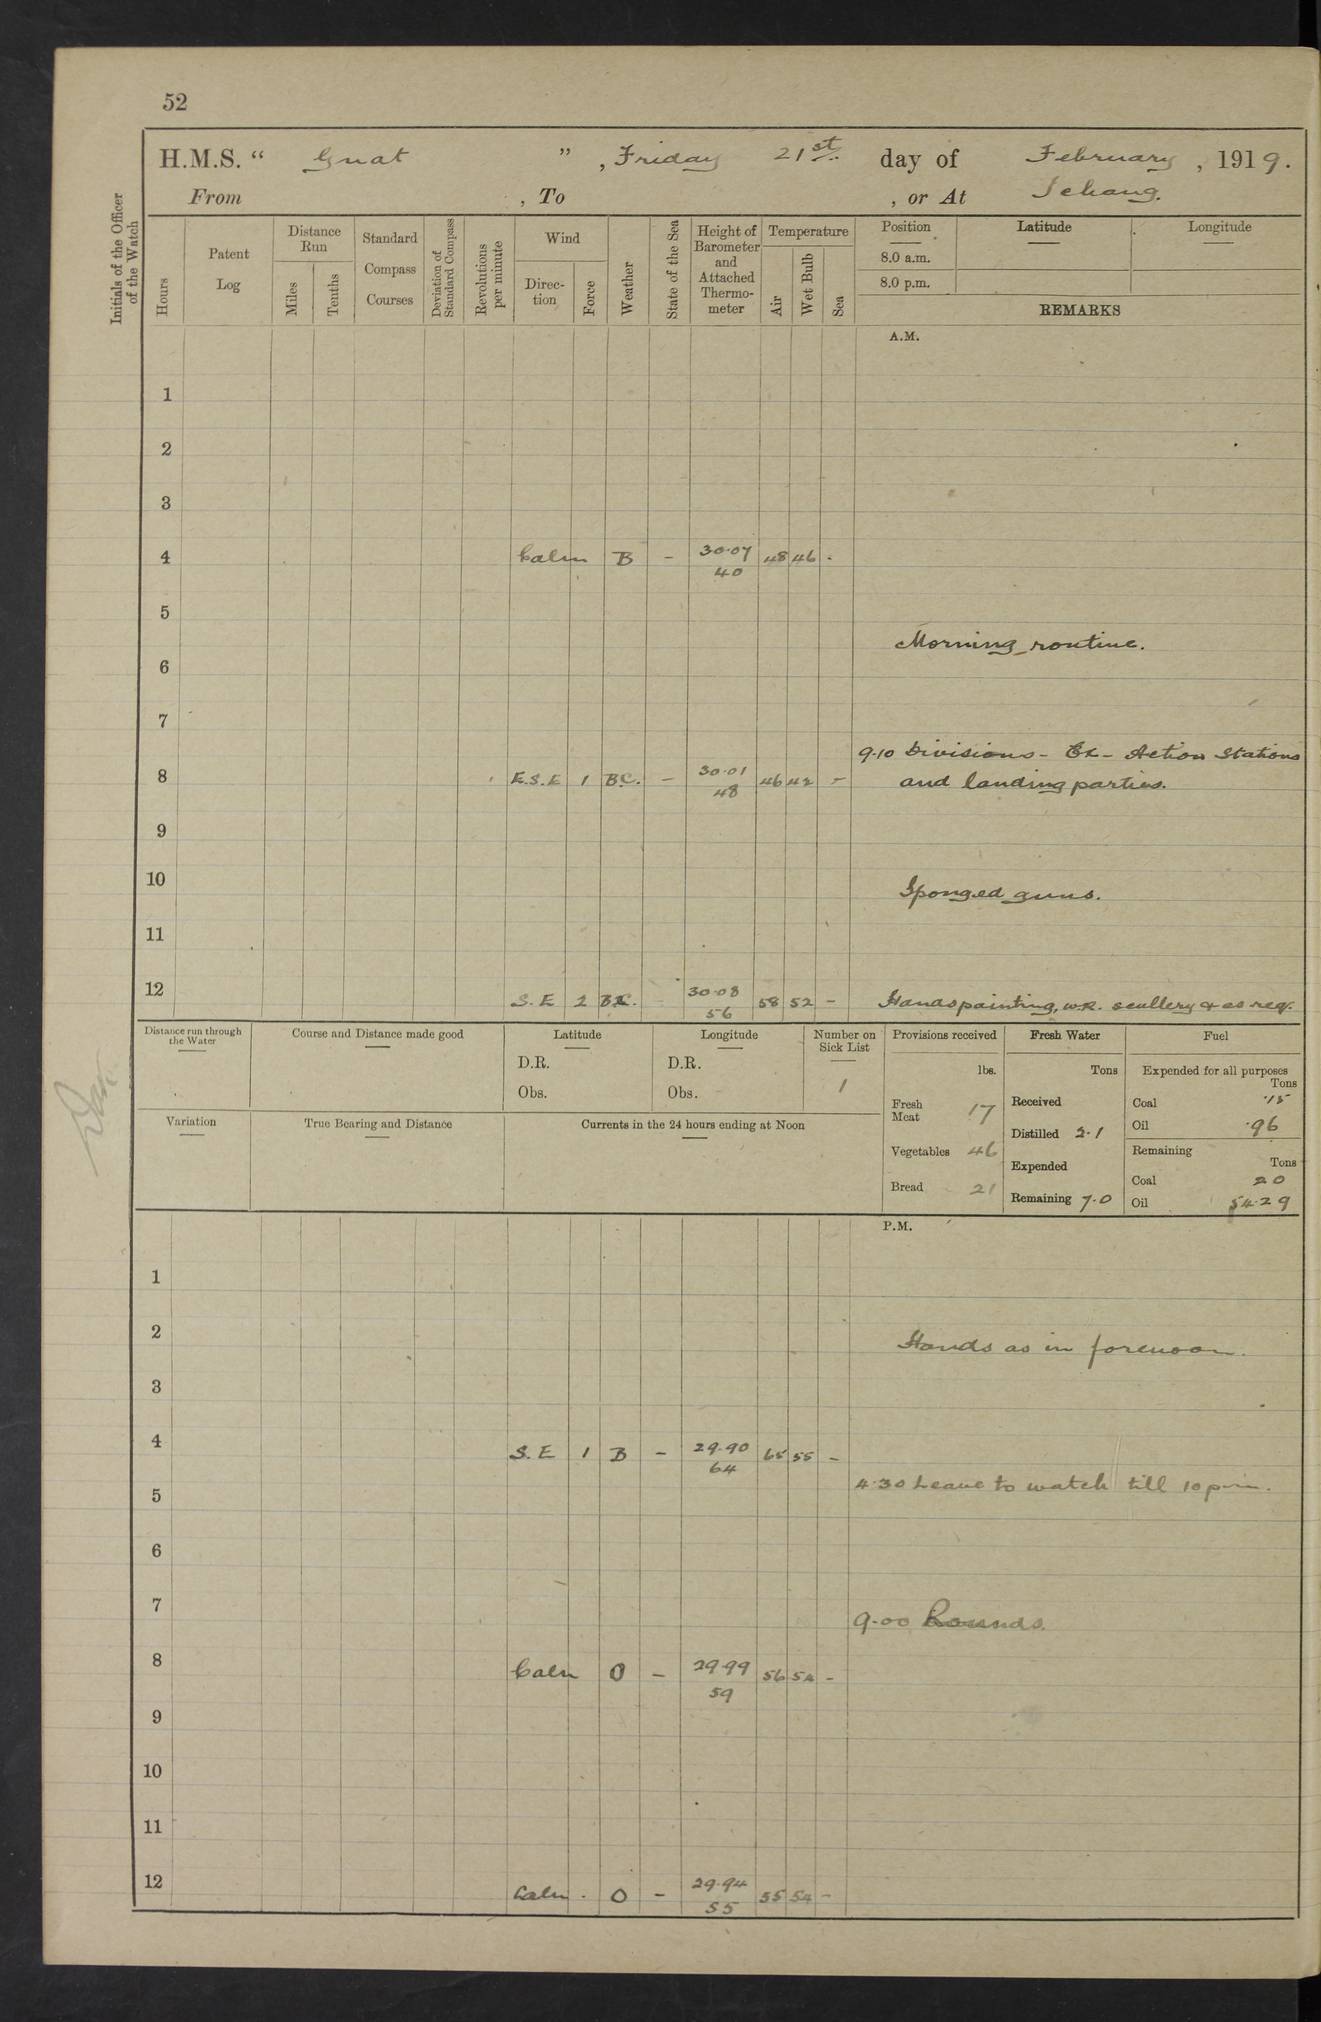 52
H.M.S. " Gnat ", Friday 21st day of February, 1919.
From , To , or At Ichang.
Initials of the Officer of the Watch
Hours
Patent Log
Distance Run
Miles
Tenths
Standard Compass Courses
Deviation of Standard Compass
Revolutions per minute
Wind
Direction
Force
Weather
State of the Sea
Height of Barometer and Attached Thermometer
Temperature
Air
Wet Bulb
Sea
Position
8.0 a.m.
8.0 p.m.
Latitude
Longitude
REMARKS
A.M.
1
2
3
4 Calm B - 30.07 48 46 -
40
5
Morning routine.
6
7
9.10 Divisions - Ex - Action Stations
8 E.S.E 1 B.C. - 30.01 46 42 - and landing parties.
48
9
10 Sponged guns.
11
12 S.E 2 B.C. 30.08 58 52 - Hands painting, W.R. scullery & as req.
56
Distance run through the Water
Course and Distance made good
Latitude
D.R.
Obs.
Longitude
D.R.
Obs.
Number on Sick List
1
Provisions received
lbs.
Fresh Meat 17
Vegetables 46
Bread 21
Fresh Water
Tons
Received
Distilled 2.1
Expended
Remaining 7.0
Fuel
Expended for all purposes
Tons
Coal .15
Oil .96
Remaining
Tons
Coal 20
Oil 54.29
Variation
True Bearing and Distance
Currents in the 24 hours ending at Noon
P.M.
1
2 Hands as in forenoon.
3
4 S.E 1 B - 29.90 65 55 -
64
4.30 Leave to watch till 10 p.m.
5
6
7 9.00 Rounds.
8 Calm O - 29.99 56 54 -
59
9
10
11
12 Calm . O - 29.94 55 54 -
55